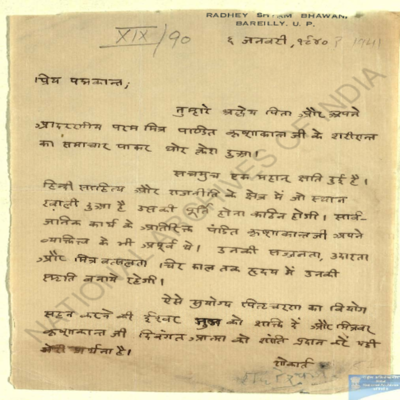 RADHEY SHYAM BHAWAN
BAREILLY, U. P.
XIX/90
६ जनवरी, १९४०
1941
प्रिय पद्मकान्त,
तुम्हारे श्रद्धेय पिता और अपने
आदरणीय परम मित्र पण्डित कृष्णकान्त जी के शरीरान्त
का समाचार पाकर घोर क्लेश हुआ।
सचमुच एक महान् क्षति हुई है।
हिन्दी साहित्य और राजनीति के क्षेत्र में जो स्थान
खाली हुआ है उसकी पूर्ति होना कठिन होगी। सार्व-
जनिक कार्य के अतिरिक्त पंडित कृष्णकान्त जी अपने
व्यक्तित्व के भी अपूर्व थे। उनकी सज्जनता, उदारता
और मित्र वत्सलता चिर काल तक हृदय में उनकी
स्मृति बनाये रहेगी।
ऐसे सुयोग्य का वियोग
सहन करने की ईश्वर को शक्ति दें और मित्रवर
कृष्णकान्त जी दिवंगत आत्मा को शांति प्रदान करें यही
मेरी प्रार्थना है।
शोकार्त
NATIONAL ARCHIVES OF INDIA